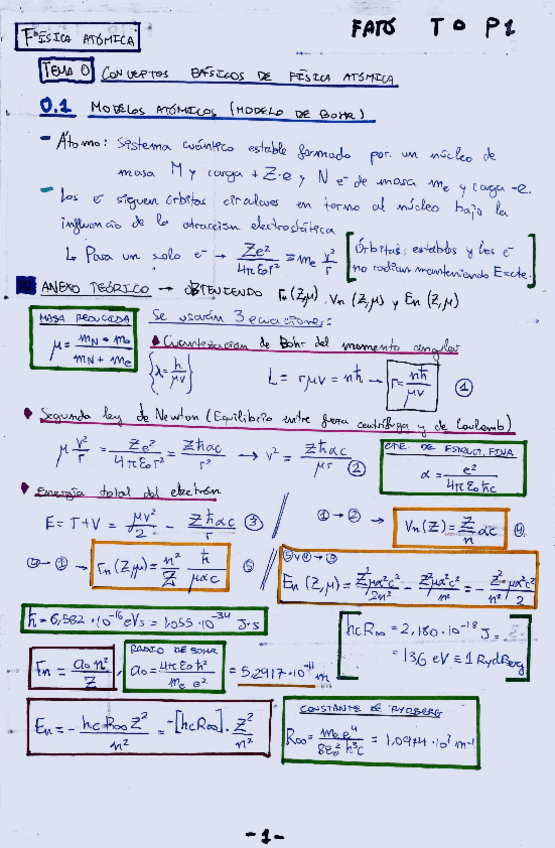 FATO TOP1
FÍSICA ATÓMICA
TEMA 0 CONCEPTOS BÁSICOS DE FÍSICA ATÓMICA
0.1 MODELOS ATÓMICOS (MODELO DE BOHR)
- Átomo: Sistema cuántico estable formado por un núcleo de
masa M y carga +Z·e y N e⁻ de masa me y carga -e.
- Los e⁻ siguen órbitas circulares en torno al núcleo bajo la
influencia de la atracción electrostática
↳ Para un solo e⁻ → Ze²/4πε₀r² = me v²/r [Órbitas estables y los e⁻ no radian manteniendo E=cte.]
ANEXO TEÓRICO → OBTENIENDO rn(Z,μ), Vn(Z,μ) y En(Z,μ)
MASA REDUCIDA
μ = mN·me / mN+me
Se usarán 3 ecuaciones:
Cuantización de Bohr del momento angular
{λ = h/μv} L = rμv = nħ → r = nħ/μv ①
Segunda ley de Newton (Equilibrio entre fuerza centrífuga y de Coulomb)
μ v²/r = Ze²/4πε₀r² = Zħαc/r² → v² = Zħαc/μr ②
CTE. DE ESTRUCT. FINA
α = e²/4πε₀ħc
Energía total del electrón
E = T+V = μv²/2 - Zħαc/r ③
① → ② → Vn(Z) = Z/n αc ④
④ → ① → rn(Z,μ) = n²/Z ħ/μαc ⑤
⑤ y ④ → ③
En(Z,μ) = Z²μα²c²/2n² - Z²μα²c²/n² = - Z²/n² μα²c²/2
ħ = 6,582·10⁻¹⁶ eVs = 1,055·10⁻³⁴ J·s
hcR∞ = 2,180·10⁻¹⁸ J
= 13,6 eV ≡ 1 Rydberg
rn = a₀n²/Z,
RADIO DE BOHR
a₀ = 4πε₀ħ²/me e² = 5,2917·10⁻¹¹ m
En = - hcR∞Z²/n² = -[hcR∞]·Z²/n²
CONSTANTE DE RYDBERG
R∞ = me e⁴/8ε₀²h³c = 1,0974·10⁷ m⁻¹
-1-